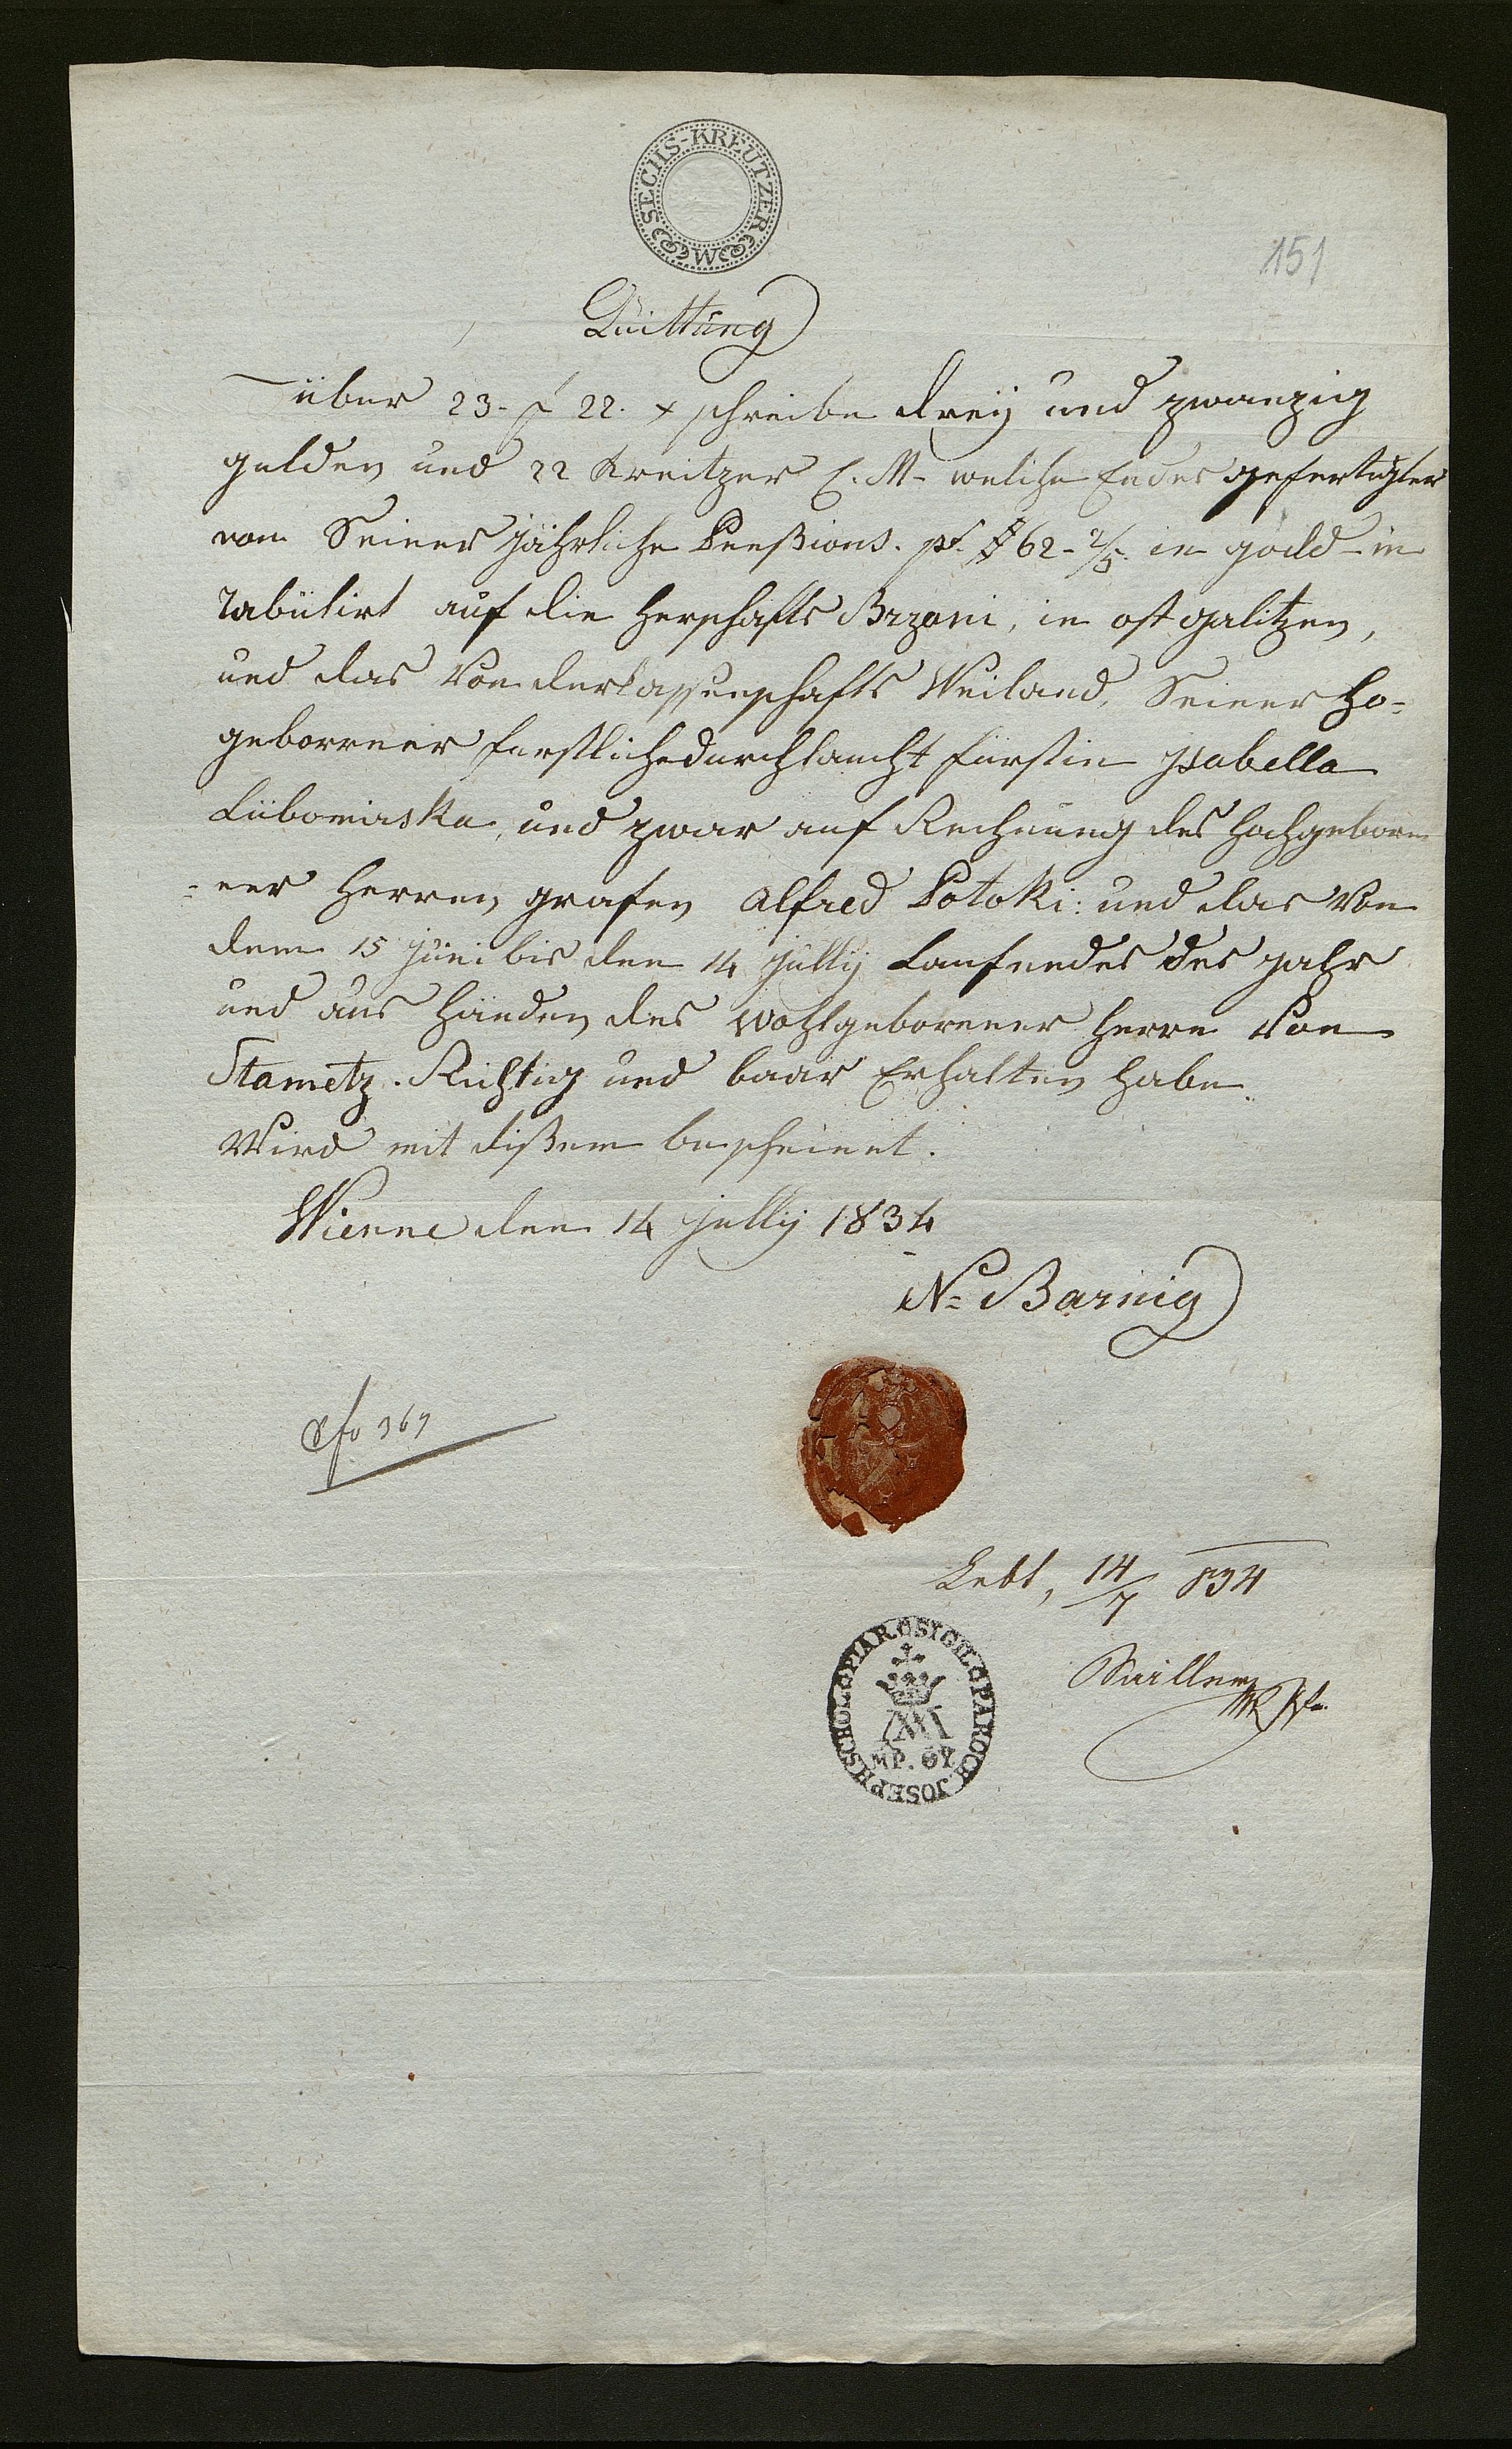 SECHS-KREUTZER
CM
151
Quittung
über 23. f 22. x schreibe dreÿ und zwanzig
gulden und 22 Kreitzer C. M. welche Endes gefertigter
von Seiner jährliche Penßions. pr # 62-2/5 in gold-in
Tabulirt auf die Herschafts Brzani, in ost galitzen,
und das Von derlassenschafts Weiland, Seiner Ho-
geborener furstliche durchlaucht fürstin Jsabella
Lübomirska, und zwar auf Rechnung des Hochgeboren
-ner Herren grafen Alfred Potoki: und das Von
dem 15 juni bis den 14 jullÿ Laufendes des jahr
und aus Händen des Wohlgeborener Herrn Von
Stametz. Richtig und baar Erhalten habe.
Wird mit dißem bescheinet.
Wienne den 14 jullÿ 1834
N= Barnig
fo 369
Lebt, 14/7 834
SIGIL PAROCH JOSEPH SCHOL PIAR
MP. ΘΥ